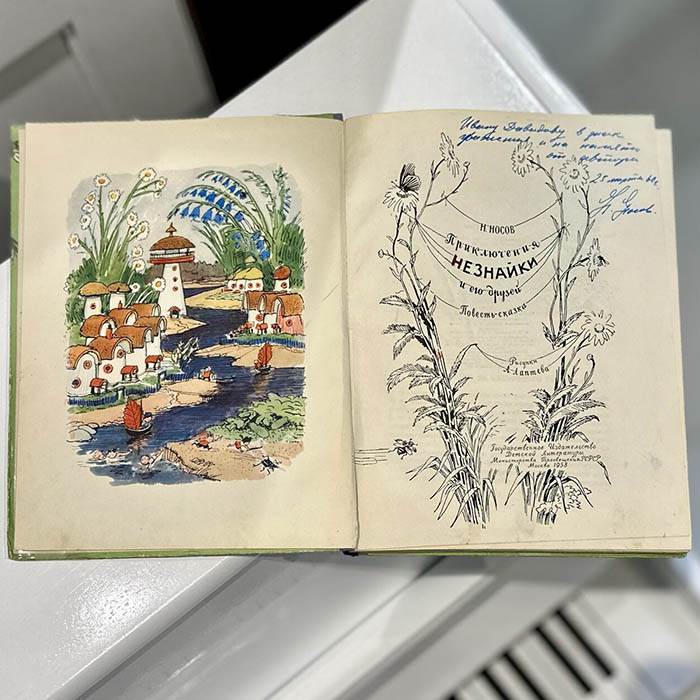 Ивану Давидову в знак
уважения и на память
от автора
25 марта 64 г.
Н. Носов.
Н. НОСОВ
Приключения
НЕЗНАЙКИ
и его друзей
Повесть-сказка
Рисунки
А. Лаптева
Государственное Издательство
Детской Литературы
Министерства Просвещения РСФСР
Москва 1958